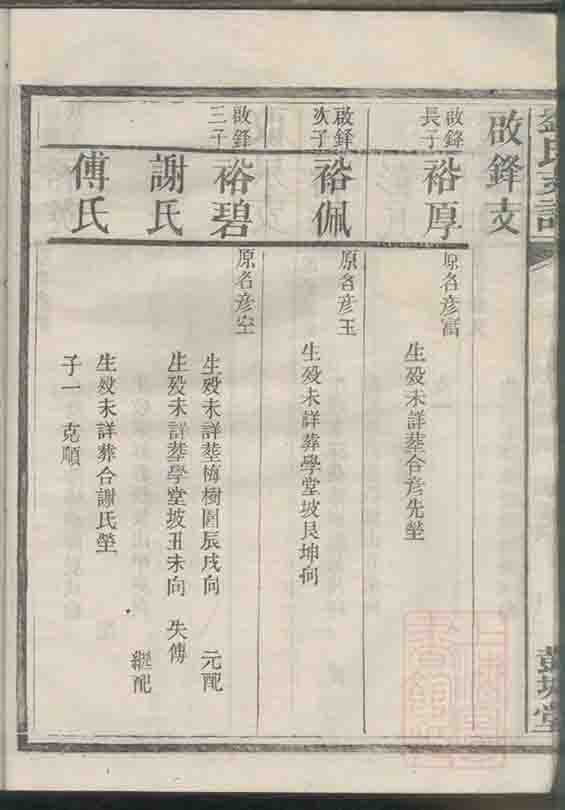 劉氏支譜
彭城堂
啟鋒支
啟鋒長子
裕厚
原名彥富
生歿未詳葬合彥先塋
啟鋒次子
裕佩
原名彥玉
生歿未詳葬學堂坡艮坤向
啟鋒三子
裕碧
原名彥空
生歿未詳葬梅樹園辰戌向 元配
謝氏
生歿未詳葬學堂坡丑未向 失傳 繼配
傅氏
生歿未詳葬合謝氏塋
子一 克順